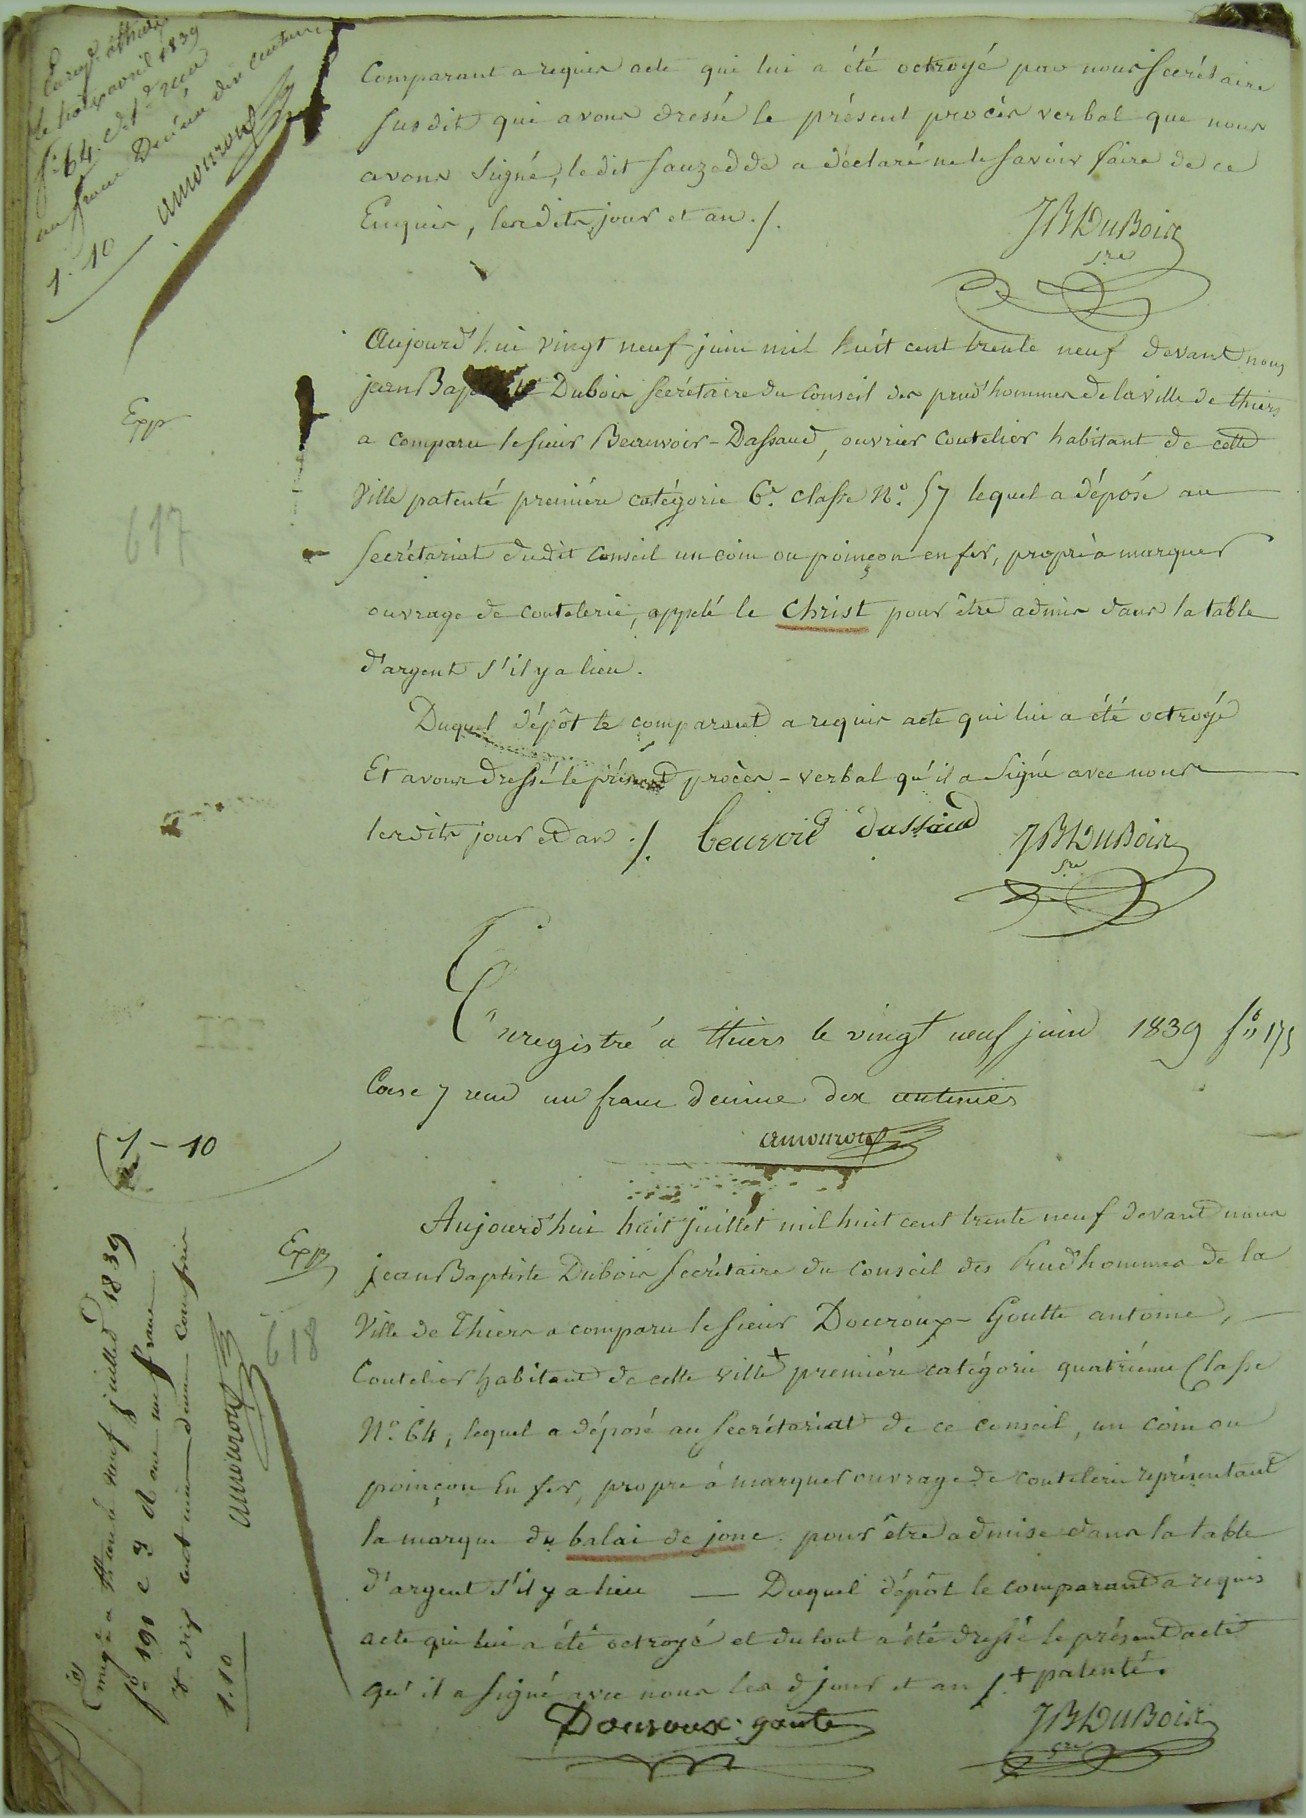 Comparant a requis acte qui lui a été octroyé par nous Secrétaire
susdit qui avons dressé le présent procès verbal que nous
avons signé, ledit Sauzedde a déclaré ne le savoir faire de ce
Enquis, lesdits jour et an ./.
JB Dubois
Sre
Enregé à thiers
le avril 1839
fo 64
un franc Décime dix centimes
1. 10
amouroux
Exp
617
Aujourd'hui vingt neuf juin mil huit cent trente neuf devant nous
jean Baptiste Dubois Secrétaire du Conseil des prud'hommes de la ville de thiers
a comparu le sieur Beauvoir-Dassaud, ouvrier coutelier habitant de cette
Ville patenté première catégorie 6e classe No. 57 lequel a déposé au
Secrétariat dudit conseil un coin ou poinçon en fer, propre à marquer
ouvrage de coutelerie, appelé le Christ pour être admis dans la table
d'argent s'il y a lieu.
Duquel dépôt le comparant a requis acte qui lui a été octroyé
Et avons dressé le présent procès-verbal qu'il a signé avec nous
lesdits jour et an ./. beauvoir dassaud JB Dubois
Sre
Enregistré à thiers le vingt neuf juin 1839 fo 175
Case 7 reçu un franc décime dix centimes
amouroux
1 - 10
Exp
618
Aujourd'hui huit juillet mil huit cent trente neuf devant nous
jean Baptiste Dubois Secrétaire du Conseil des Prud'hommes de la
Ville de Thiers a comparu le sieur Douroux-Goutte antoine,
Coutelier habitant de cette ville + première catégorie quatrième Classe
No. 64, lequel a déposé au Secrétariat de ce conseil, un coin ou
poinçon En fer, propre à marquer ouvrage de coutelerie représentant
la marque du balai de jonc pour être admise dans la table
d'argent s'il y a lieu — Duquel dépôt le comparant a requis
acte qui lui a été octroyé et du tout a été dressé le présent acte
qu'il a signé avec nous les d jour et an ./. + patenté.
Douroux goute JB Dubois
Sre
Enregé à thiers le neuf juillet 1839
fo 190 c 9 un franc
dix centimes
amouroux
1.10